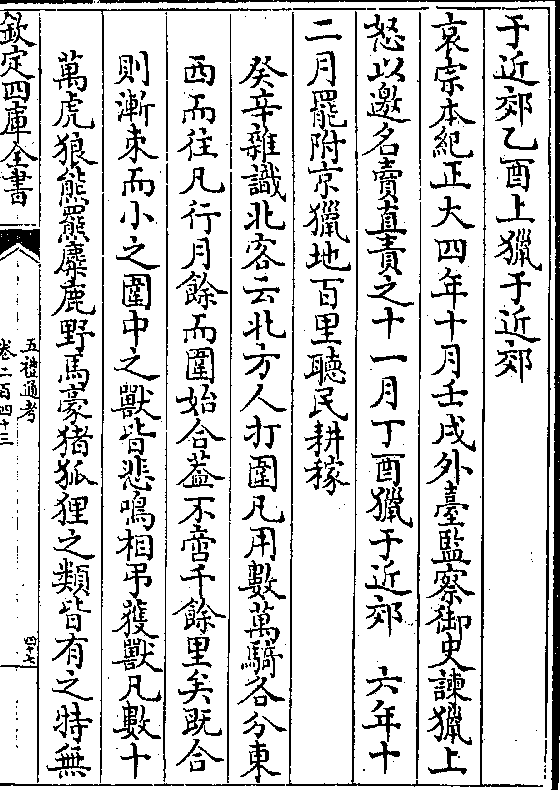 于近郊乙酉上獵于近郊
哀宗本紀正大四年十月壬戌外臺監察御史諫獵上
怒以邀名賣直責之十一月丁酉獵于近郊　六年十
二月罷附京獵地百里聽民耕稼
癸辛雜識北客云北方人打圍凡用數萬騎各分東
西而往凡行月餘而圍始合葢不啻千餘里矣既合
則漸束而小之圍中之獸皆悲鳴相弔獲獸凡數十
萬虎狼熊羆麋鹿野馬豪猪狐狸之類皆有之特無
欽定四庫全書
五禮通考
卷二百四十三
四十七